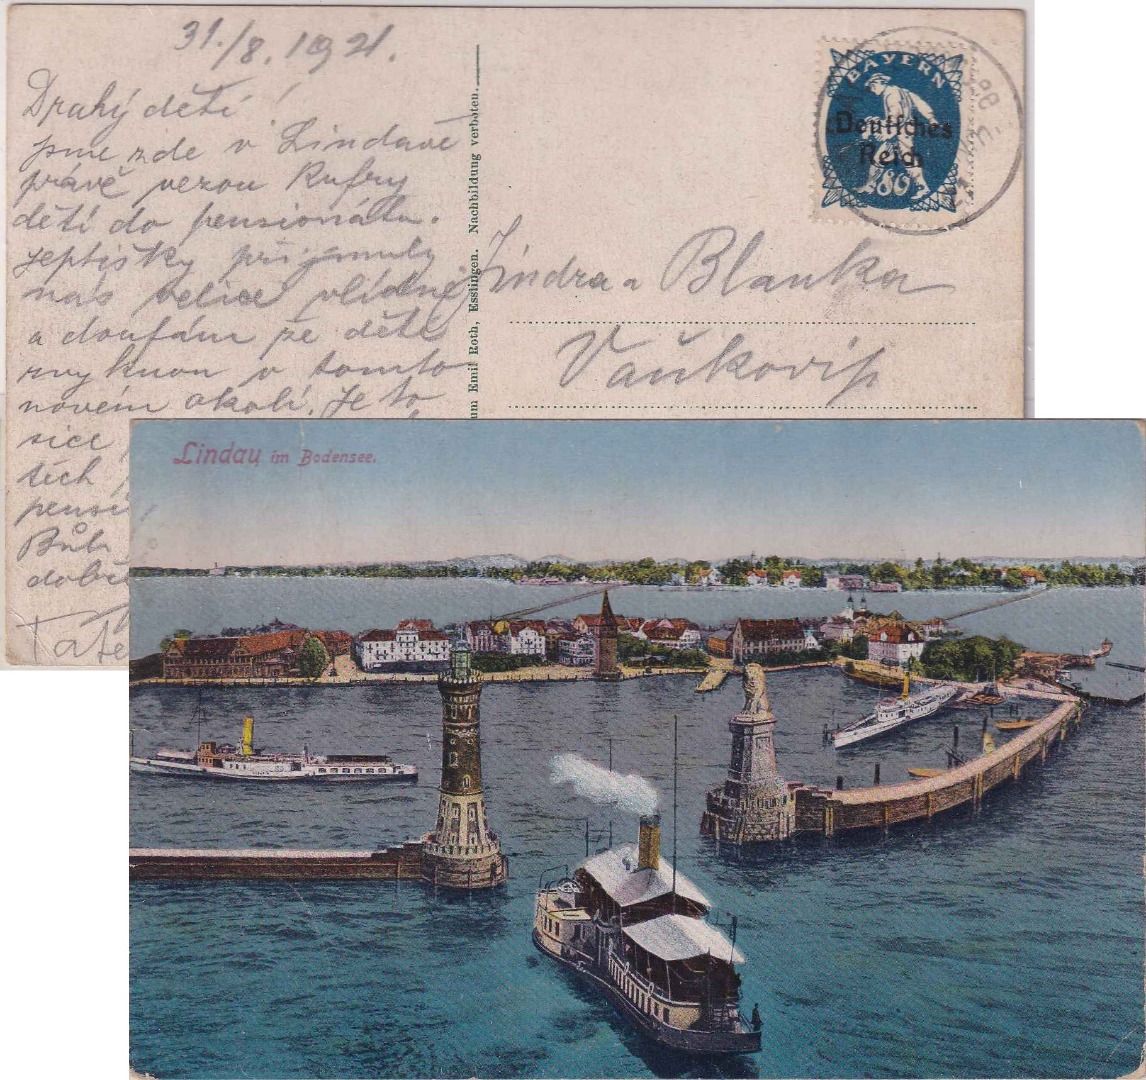 31./8. 1921.
Drahý děti!
jsme zde v Lindavě
právě vezou Kufry
dětí do pensionátu.
jeptišky přijmuly
nás velice vlídně
a doufám že děti
zvyknou v tomto
novém okolí. Je to
sice
těch
pensi
Bůh
dobř
Tate
um Emil Roth, Esslingen. Nachbildung verboten.
BAYERN
Deutsches
Reich
80
Jindra a Blanka
Vaňkovi
Lindau im Bodensee.